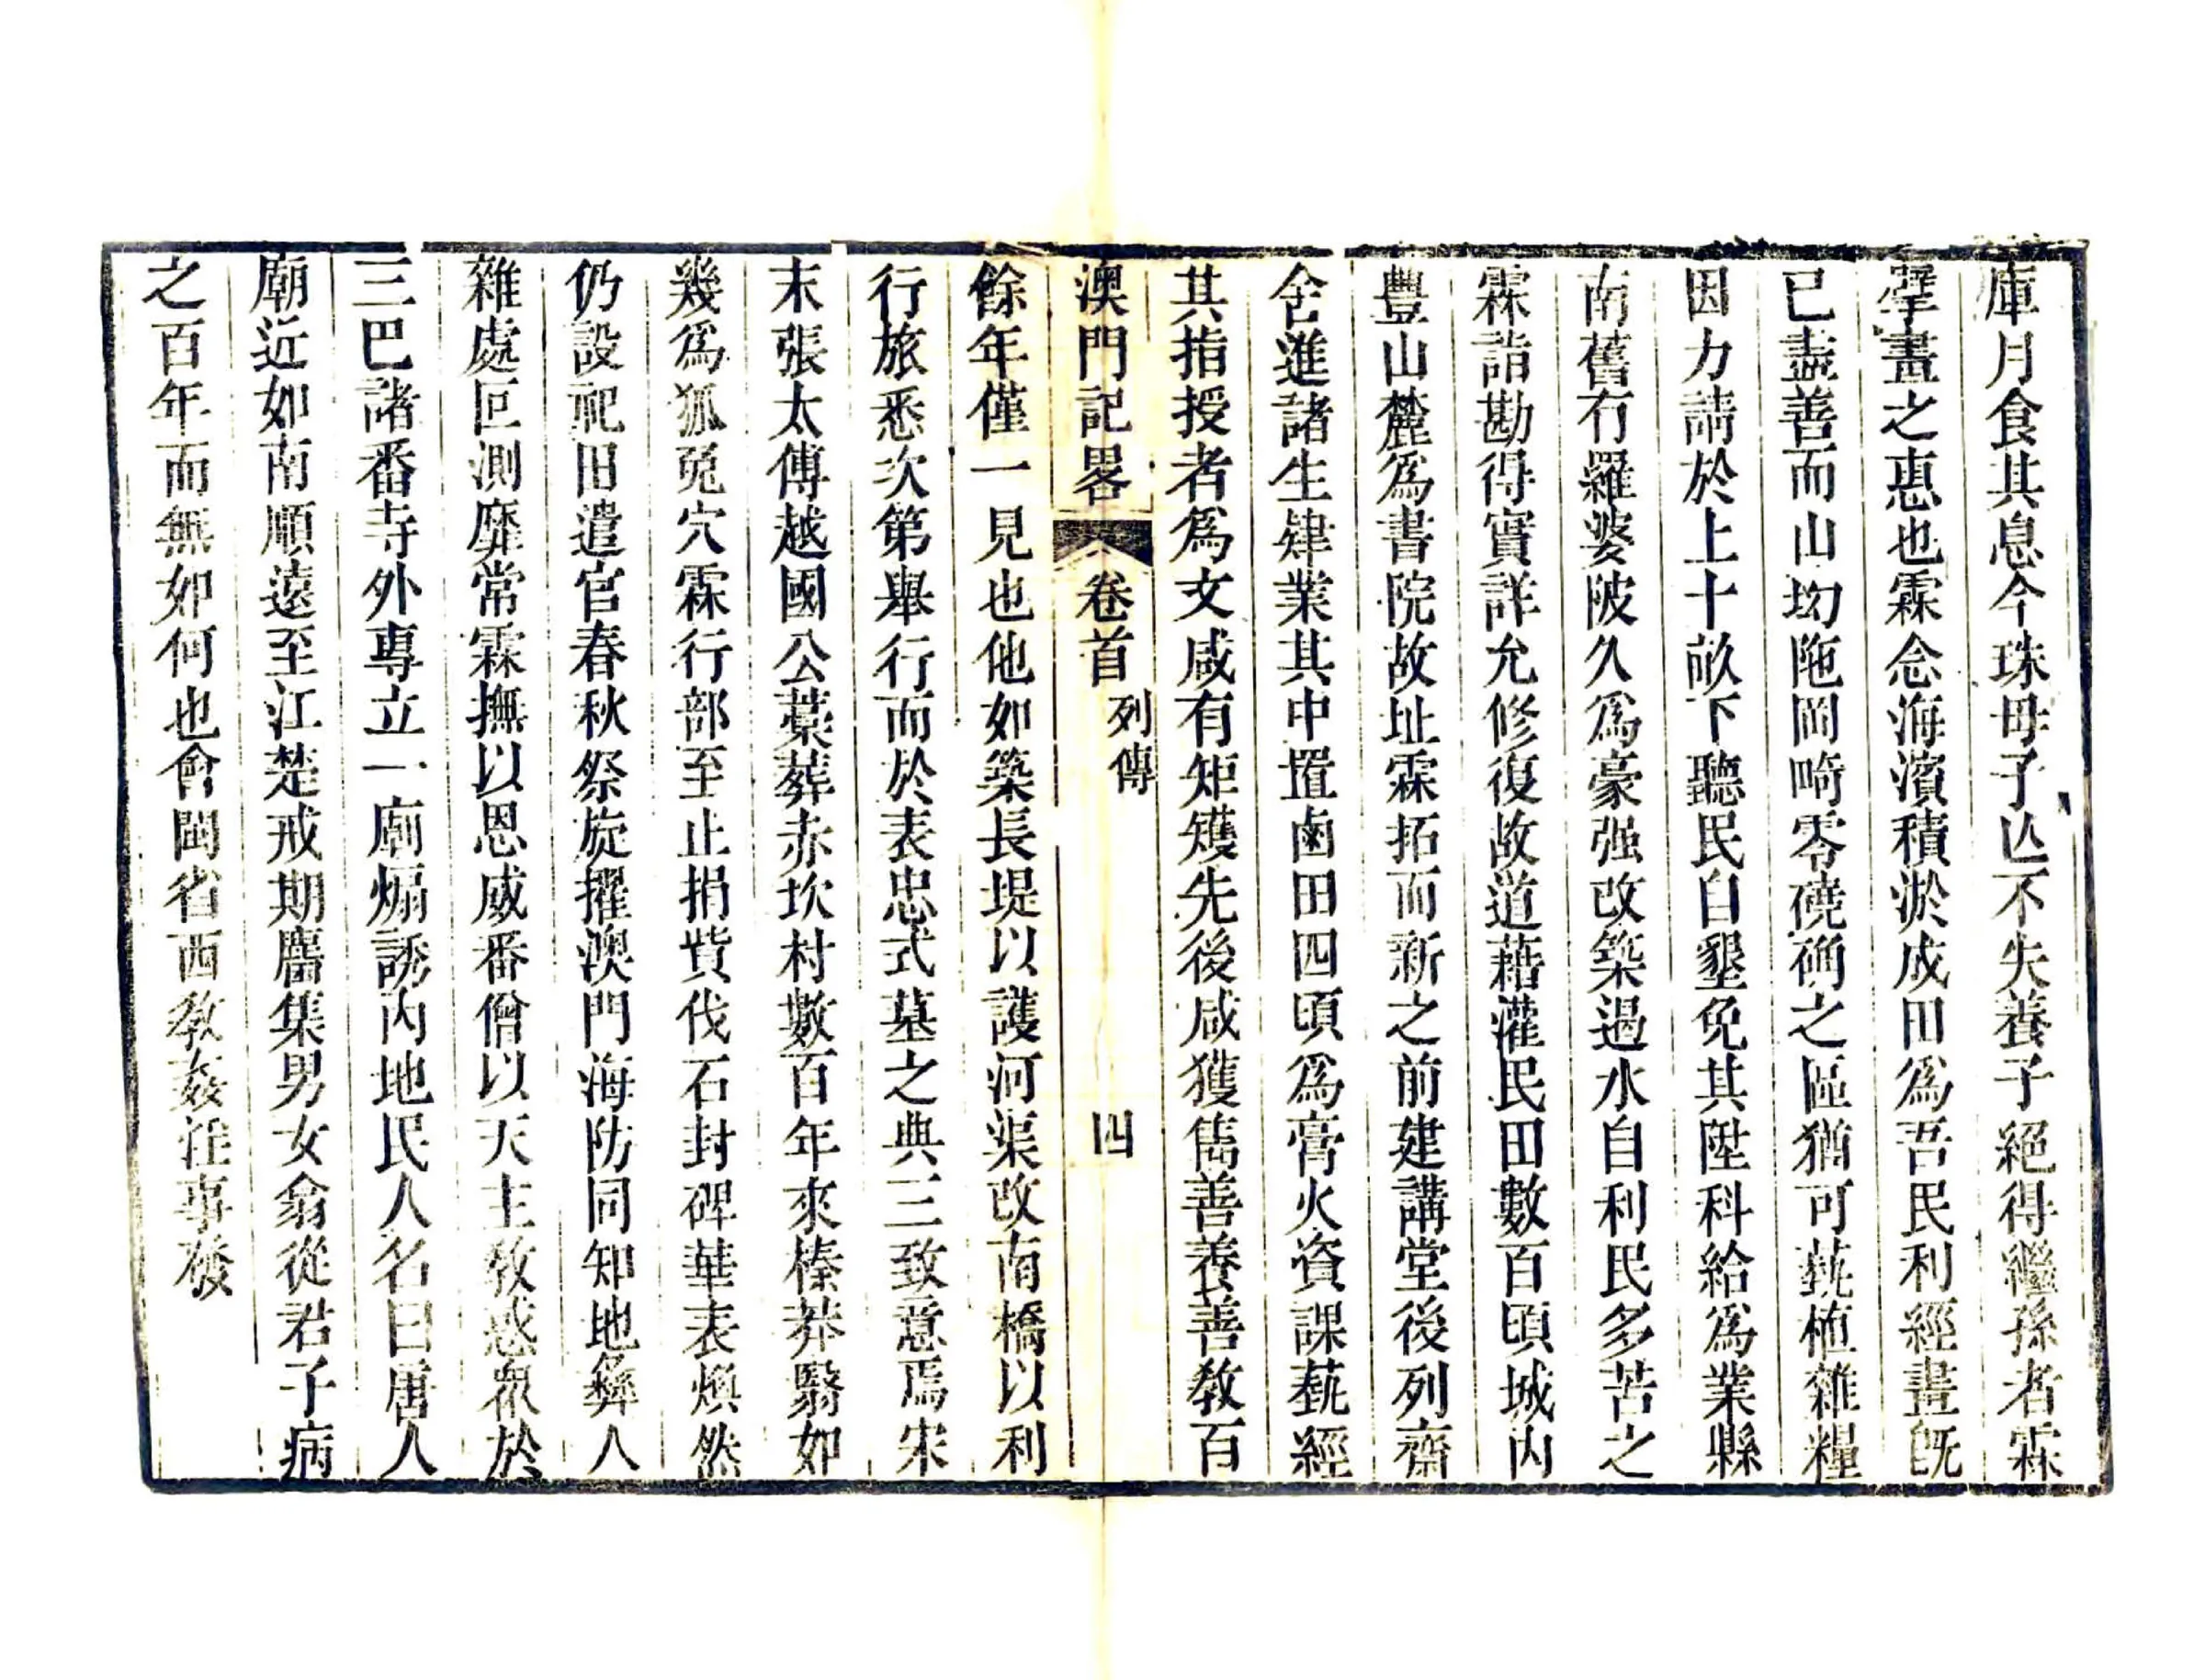 庫月食其息今珠母子亾不失養子絕得繼孫者霖
擘畫之惠也霖念海濱積淤成田爲吾民利經畫旣
已盡善而山㘭陁岡畸零磽确之區猶可蓺植雜糧
因力請於上十畝下聽民自墾免其陞科給爲業縣
南舊有羅婆陂久爲豪强改築過水自利民多苦之
霖詣勘得實詳允修復故道藉灌民田數百頃城內
豐山麓爲書院故址霖拓而新之前建講堂後列齋
舍進諸生肄業其中置鹵田四頃爲膏火資課蓺經
其指授者爲文咸有矩矱先後咸獲雋善養善教百
澳門記畧 卷首 列傳 四
餘年僅一見也他如築長堤以護河渠改南橋以利
行旅悉次第舉行而於表忠式墓之典三致意焉宋
末張太傅越國公藁葬赤坎村數百年來榛莽翳如
幾爲狐兎穴霖行部至止捐貲伐石封碑華表煥然
仍設祀田遣官春秋祭旋擢澳門海防同知地彝人
雜處叵測靡常霖撫以恩威番僧以天主教惑衆於
三巴諸番寺外專立一廟煽誘內地民人名曰唐人
廟近如南順遠至江楚戒期麕集男女翕從君子病
之百年而無如何也會閩省西教姦徃事發